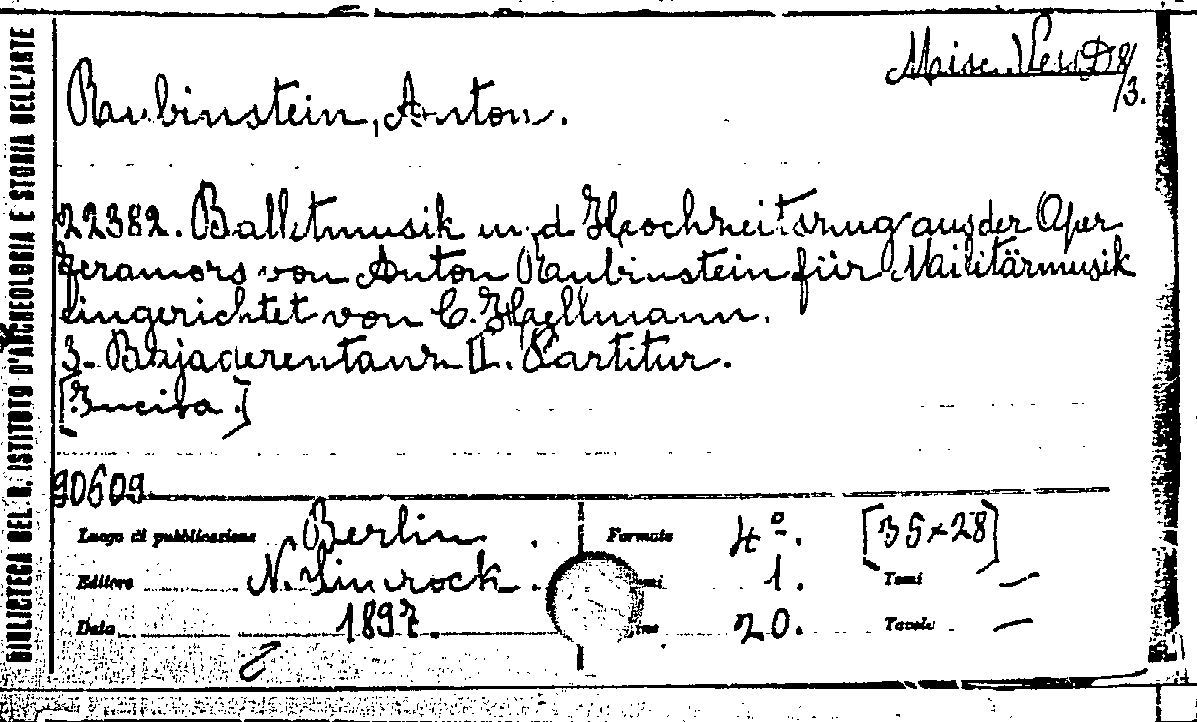 BIBLIOTECA DEL R. ISTITUTO D'ARCHEOLOGIA E STORIA DELL'ARTE
Misc. Vess D 8/3.
Rubinstein, Anton.
22382. Balletmusik und Hochzeitszug aus der Oper
Feramors von Anton Rubinstein für Militärmusik
eingerichtet von C. Hellmann.
3- Bajaderentanz II. Partitur.
[Incisa.]
90609
Luogo di pubblicazione Berlin. Formato 4º. [35×28]
Editore N. Simrock. 1. Tomi —
Data 1897. 20. Tavole —